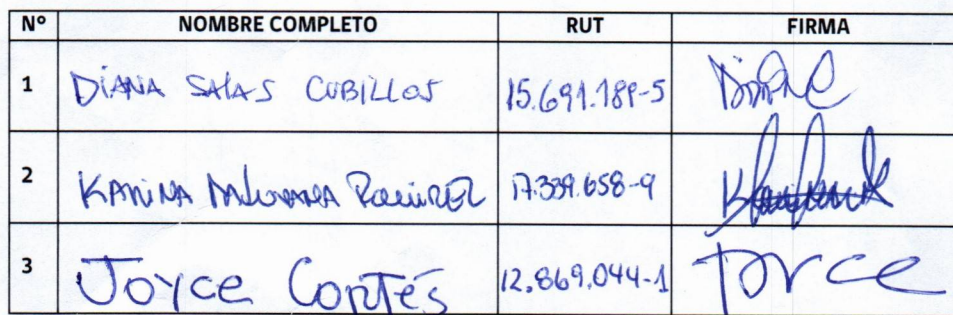 N° NOMBRE COMPLETO RUT FIRMA
1 DIANA SALAS CUBILLOS 15.691.189-5
2 KARINA RAMIREZ 17.339.658-9
3 Joyce Cortés 12.869.044-1 Joyce